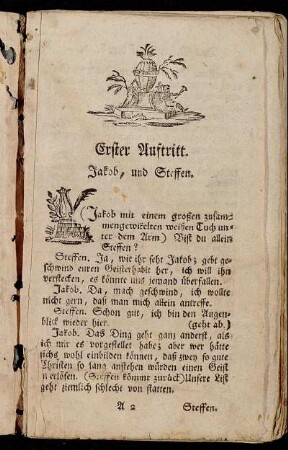 Erster Auftritt.
Jakob, und Steffen.
(Jakob mit einem großen zusam-
mengewikelten weißen Tuch un-
ter dem Arm) Bist du allein
Steffen?
Steffen. Ja, wie ihr seht Jakob; gebt ge-
schwind euren Geisterhabit her, ich will ihn
verstecken, es könnte uns jemand überfallen.
Jakob. Da, mach geschwind, ich wollte
nicht gern, daß man mich allein antreffe.
Steffen. Schon gut, ich bin den Augen-
blick wieder hier. (geht ab.)
Jakob. Das Ding geht ganz anderst, als
ich mir es vorgestellet habe; aber wer hätte
sichs wohl einbilden können, daß zwey so gute
Christen so lang anstehen würden einen Geist
zu erlösen. (Steffen kömmt zurück) Unsere List
geht ziemlich schlecht von statten.
A 2 Steffen.